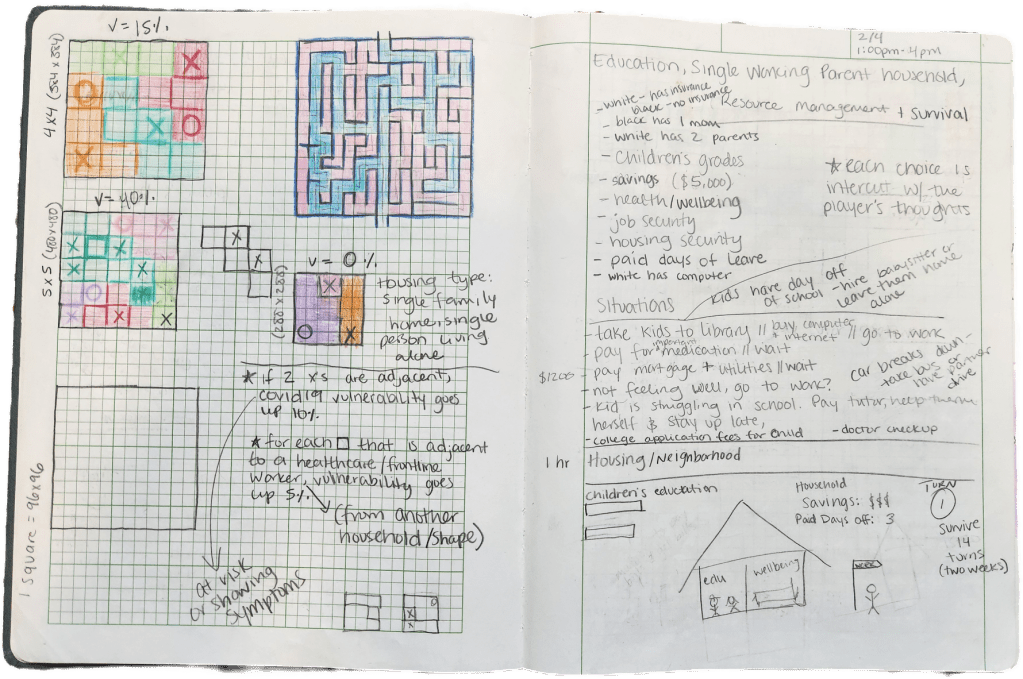 v=15%
4x4 (384 x 384)
v=40%
5x5 (480x480)
v=0%
(288 x 288)
Housing type:
single family
home, single
person living
alone
* if 2 xs are adjacent,
covid19 vulnerability goes
up 10%
* for each □ that is adjacent
to a healthcare/frontline
worker, vulnerability goes
up 5%
(from another
household/shape)
at risk
or showing
symptoms
1 square = 96x96
2/4
1:00pm-4pm
Education, Single Working Parent household,
Resource management + survival
- white - has insurance
black - no insurance
- black has 1 mom
- white has 2 parents
- children's grades
- savings ($5,000)
- health/wellbeing
- job security
- housing security
- paid days of leave
- white has computer
* each choice is
intercut w/ the
player's thoughts
Situations
kids have day off
of school - hire babysitter or
leave them home
alone
- take kids to library // buy computer + internet // go to work
- pay for important medication // wait
$1200
- pay mortgage + utilities // wait
- not feeling well, go to work?
car breaks down -
take bus or
have partner
drive
- kid is struggling in school. Pay tutor, help them
herself & stay up late,
- college application fees for child
- doctor checkup
1 hr
Housing/Neighborhood
children's education
Household
Savings: $$$
Paid Days off: 3
TURN
1
Survive
14
turns
(two weeks)
edu
wellbeing
work